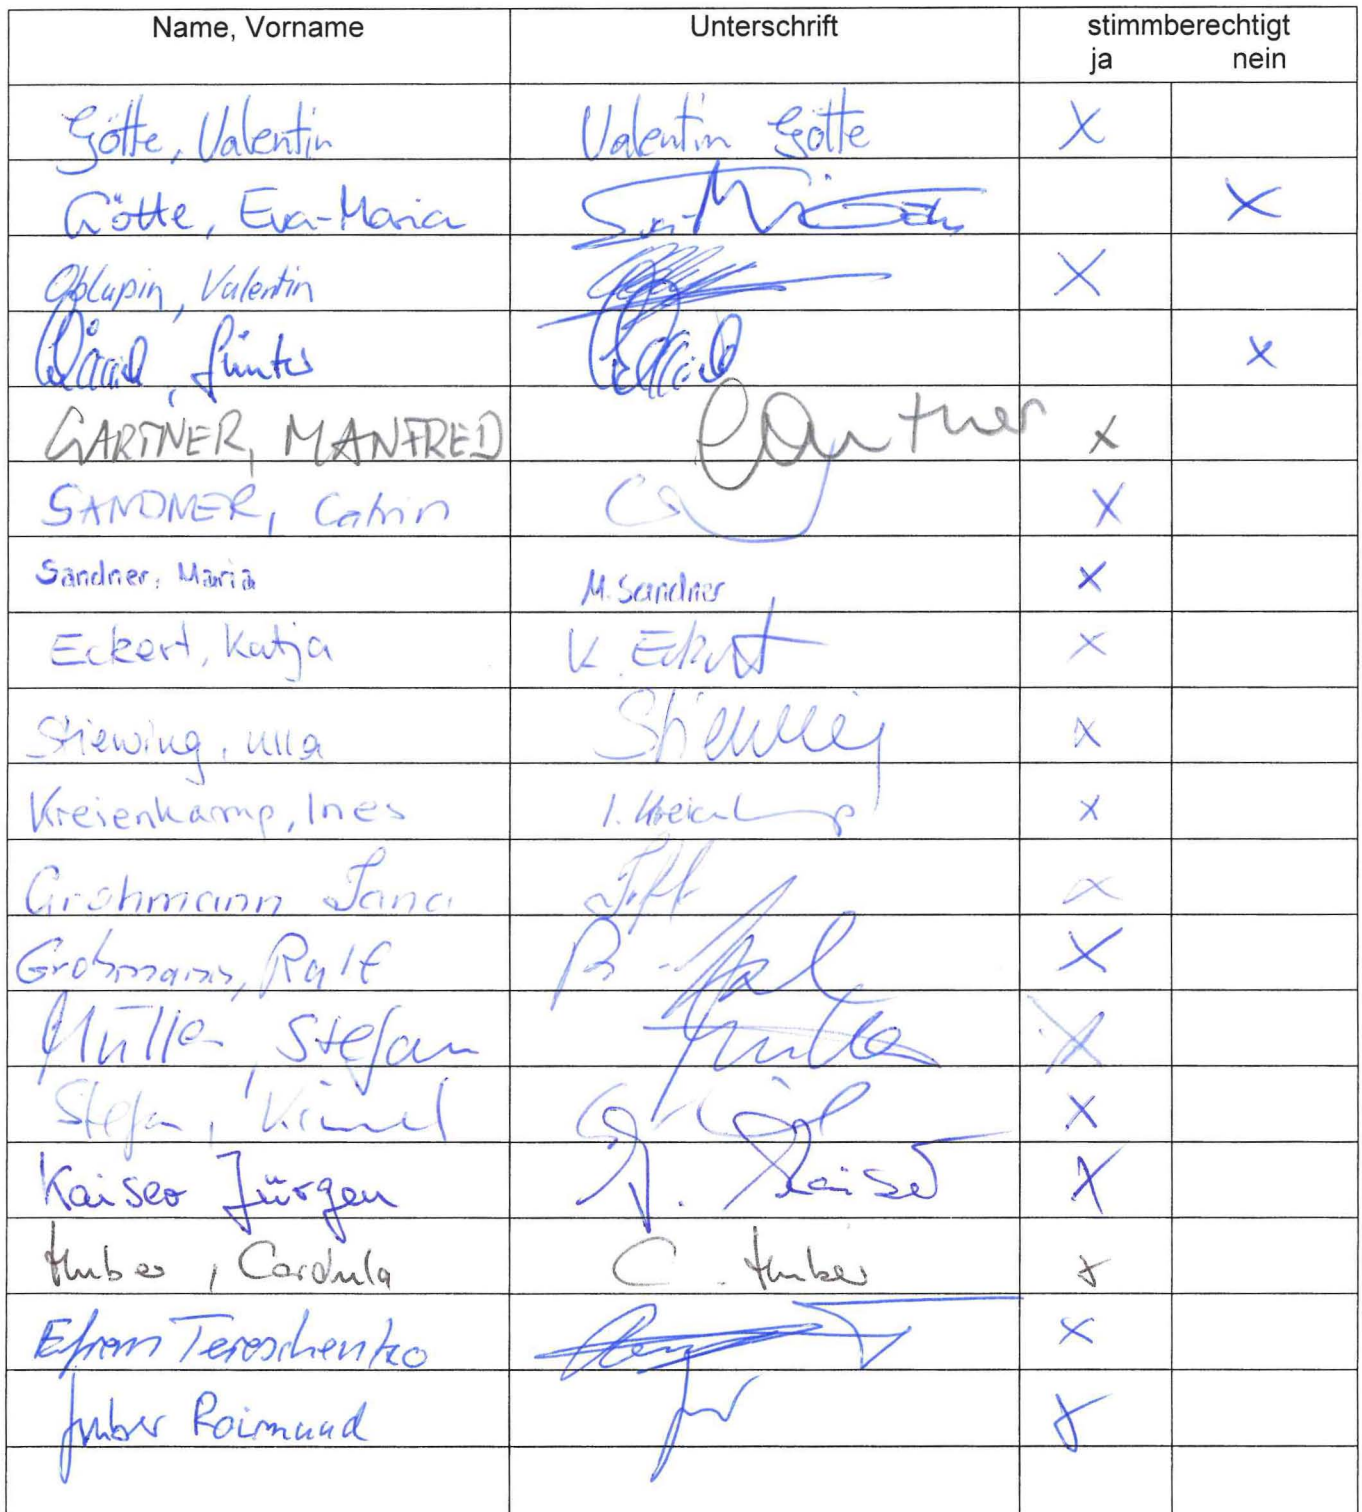 Name, Vorname Unterschrift stimmberechtigt
ja nein
Götte, Valentin Valentin Götte X
Götte, Eva-Maria X
Oblupin, Valentin X
Günter X
GARTNER, MANFRED Gärtner X
SANDNER, Catrin X
Sandner, Maria M. Sandner X
Eckert, Katja K. Eckert X
Stiewing, Ulla Stiewing X
Kreienkamp, Ines I. Kreienkamp X
Grohmann Jana X
Grohmann, Ralf X
Müller, Stefan Müller X
Stefan, X
Kaiser Jürgen J. Kaiser X
Huber, Cordula C. Huber X
Efrem Tereschenko X
Huber Raimund X